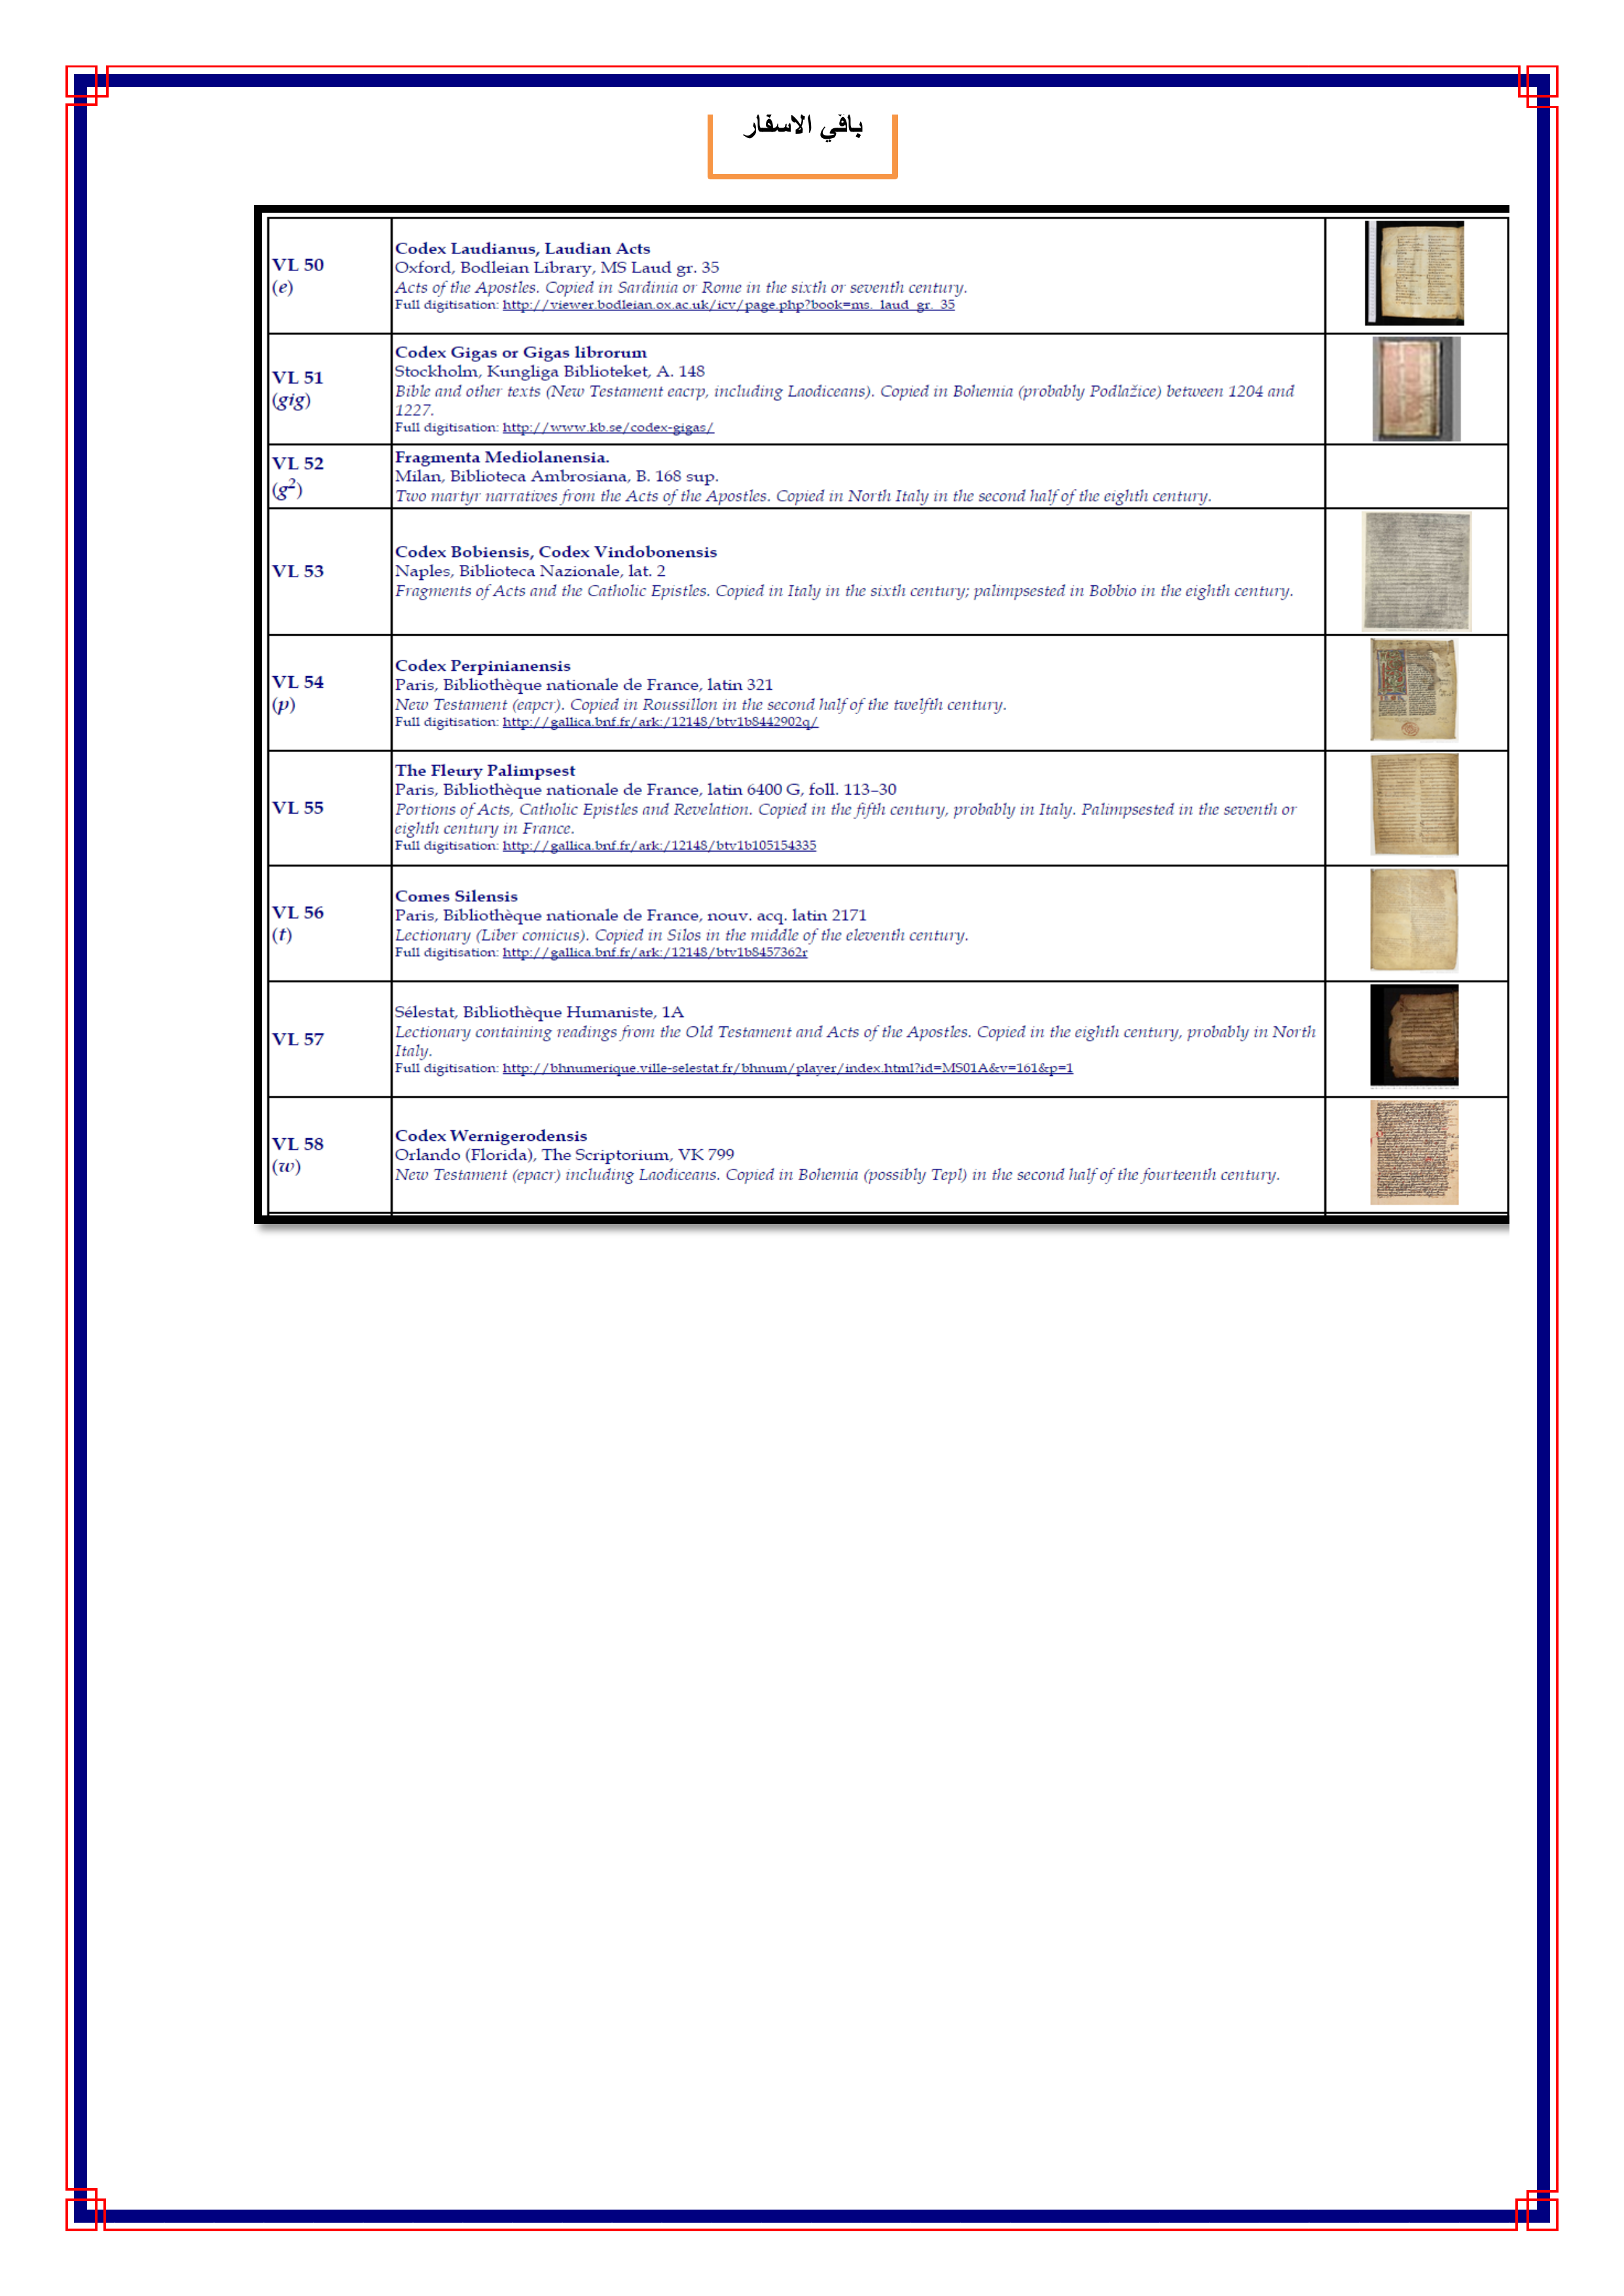 باقي الاسفار
VL 50
(e)
Codex Laudianus, Laudian Acts
Oxford, Bodleian Library, MS Laud gr. 35
Acts of the Apostles. Copied in Sardinia or Rome in the sixth or seventh century.
Full digitisation: http://viewer.bodleian.ox.ac.uk/icv/page.php?book=ms._laud_gr._35
VL 51
(gig)
Codex Gigas or Gigas librorum
Stockholm, Kungliga Biblioteket, A. 148
Bible and other texts (New Testament eacrp, including Laodiceans). Copied in Bohemia (probably Podlažice) between 1204 and
1227.
Full digitisation: http://www.kb.se/codex-gigas/
VL 52
(g²)
Fragmenta Mediolanensia.
Milan, Biblioteca Ambrosiana, B. 168 sup.
Two martyr narratives from the Acts of the Apostles. Copied in North Italy in the second half of the eighth century.
VL 53
Codex Bobiensis, Codex Vindobonensis
Naples, Biblioteca Nazionale, lat. 2
Fragments of Acts and the Catholic Epistles. Copied in Italy in the sixth century; palimpsested in Bobbio in the eighth century.
VL 54
(p)
Codex Perpinianensis
Paris, Bibliothèque nationale de France, latin 321
New Testament (eapcr). Copied in Roussillon in the second half of the twelfth century.
Full digitisation: http://gallica.bnf.fr/ark:/12148/btv1b8442902q/
VL 55
The Fleury Palimpsest
Paris, Bibliothèque nationale de France, latin 6400 G, foll. 113–30
Portions of Acts, Catholic Epistles and Revelation. Copied in the fifth century, probably in Italy. Palimpsested in the seventh or
eighth century in France.
Full digitisation: http://gallica.bnf.fr/ark:/12148/btv1b105154335
VL 56
(t)
Comes Silensis
Paris, Bibliothèque nationale de France, nouv. acq. latin 2171
Lectionary (Liber comicus). Copied in Silos in the middle of the eleventh century.
Full digitisation: http://gallica.bnf.fr/ark:/12148/btv1b8457362r
VL 57
Sélestat, Bibliothèque Humaniste, 1A
Lectionary containing readings from the Old Testament and Acts of the Apostles. Copied in the eighth century, probably in North
Italy.
Full digitisation: http://bhnumerique.ville-selestat.fr/bhnum/player/index.html?id=MS01A&v=161&p=1
VL 58
(w)
Codex Wernigerodensis
Orlando (Florida), The Scriptorium, VK 799
New Testament (epacr) including Laodiceans. Copied in Bohemia (possibly Tepl) in the second half of the fourteenth century.